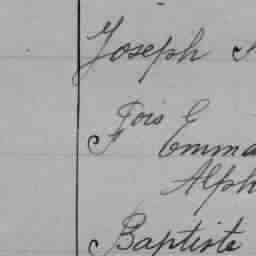 Joseph
Fois E
Emma
Alph
Baptiste